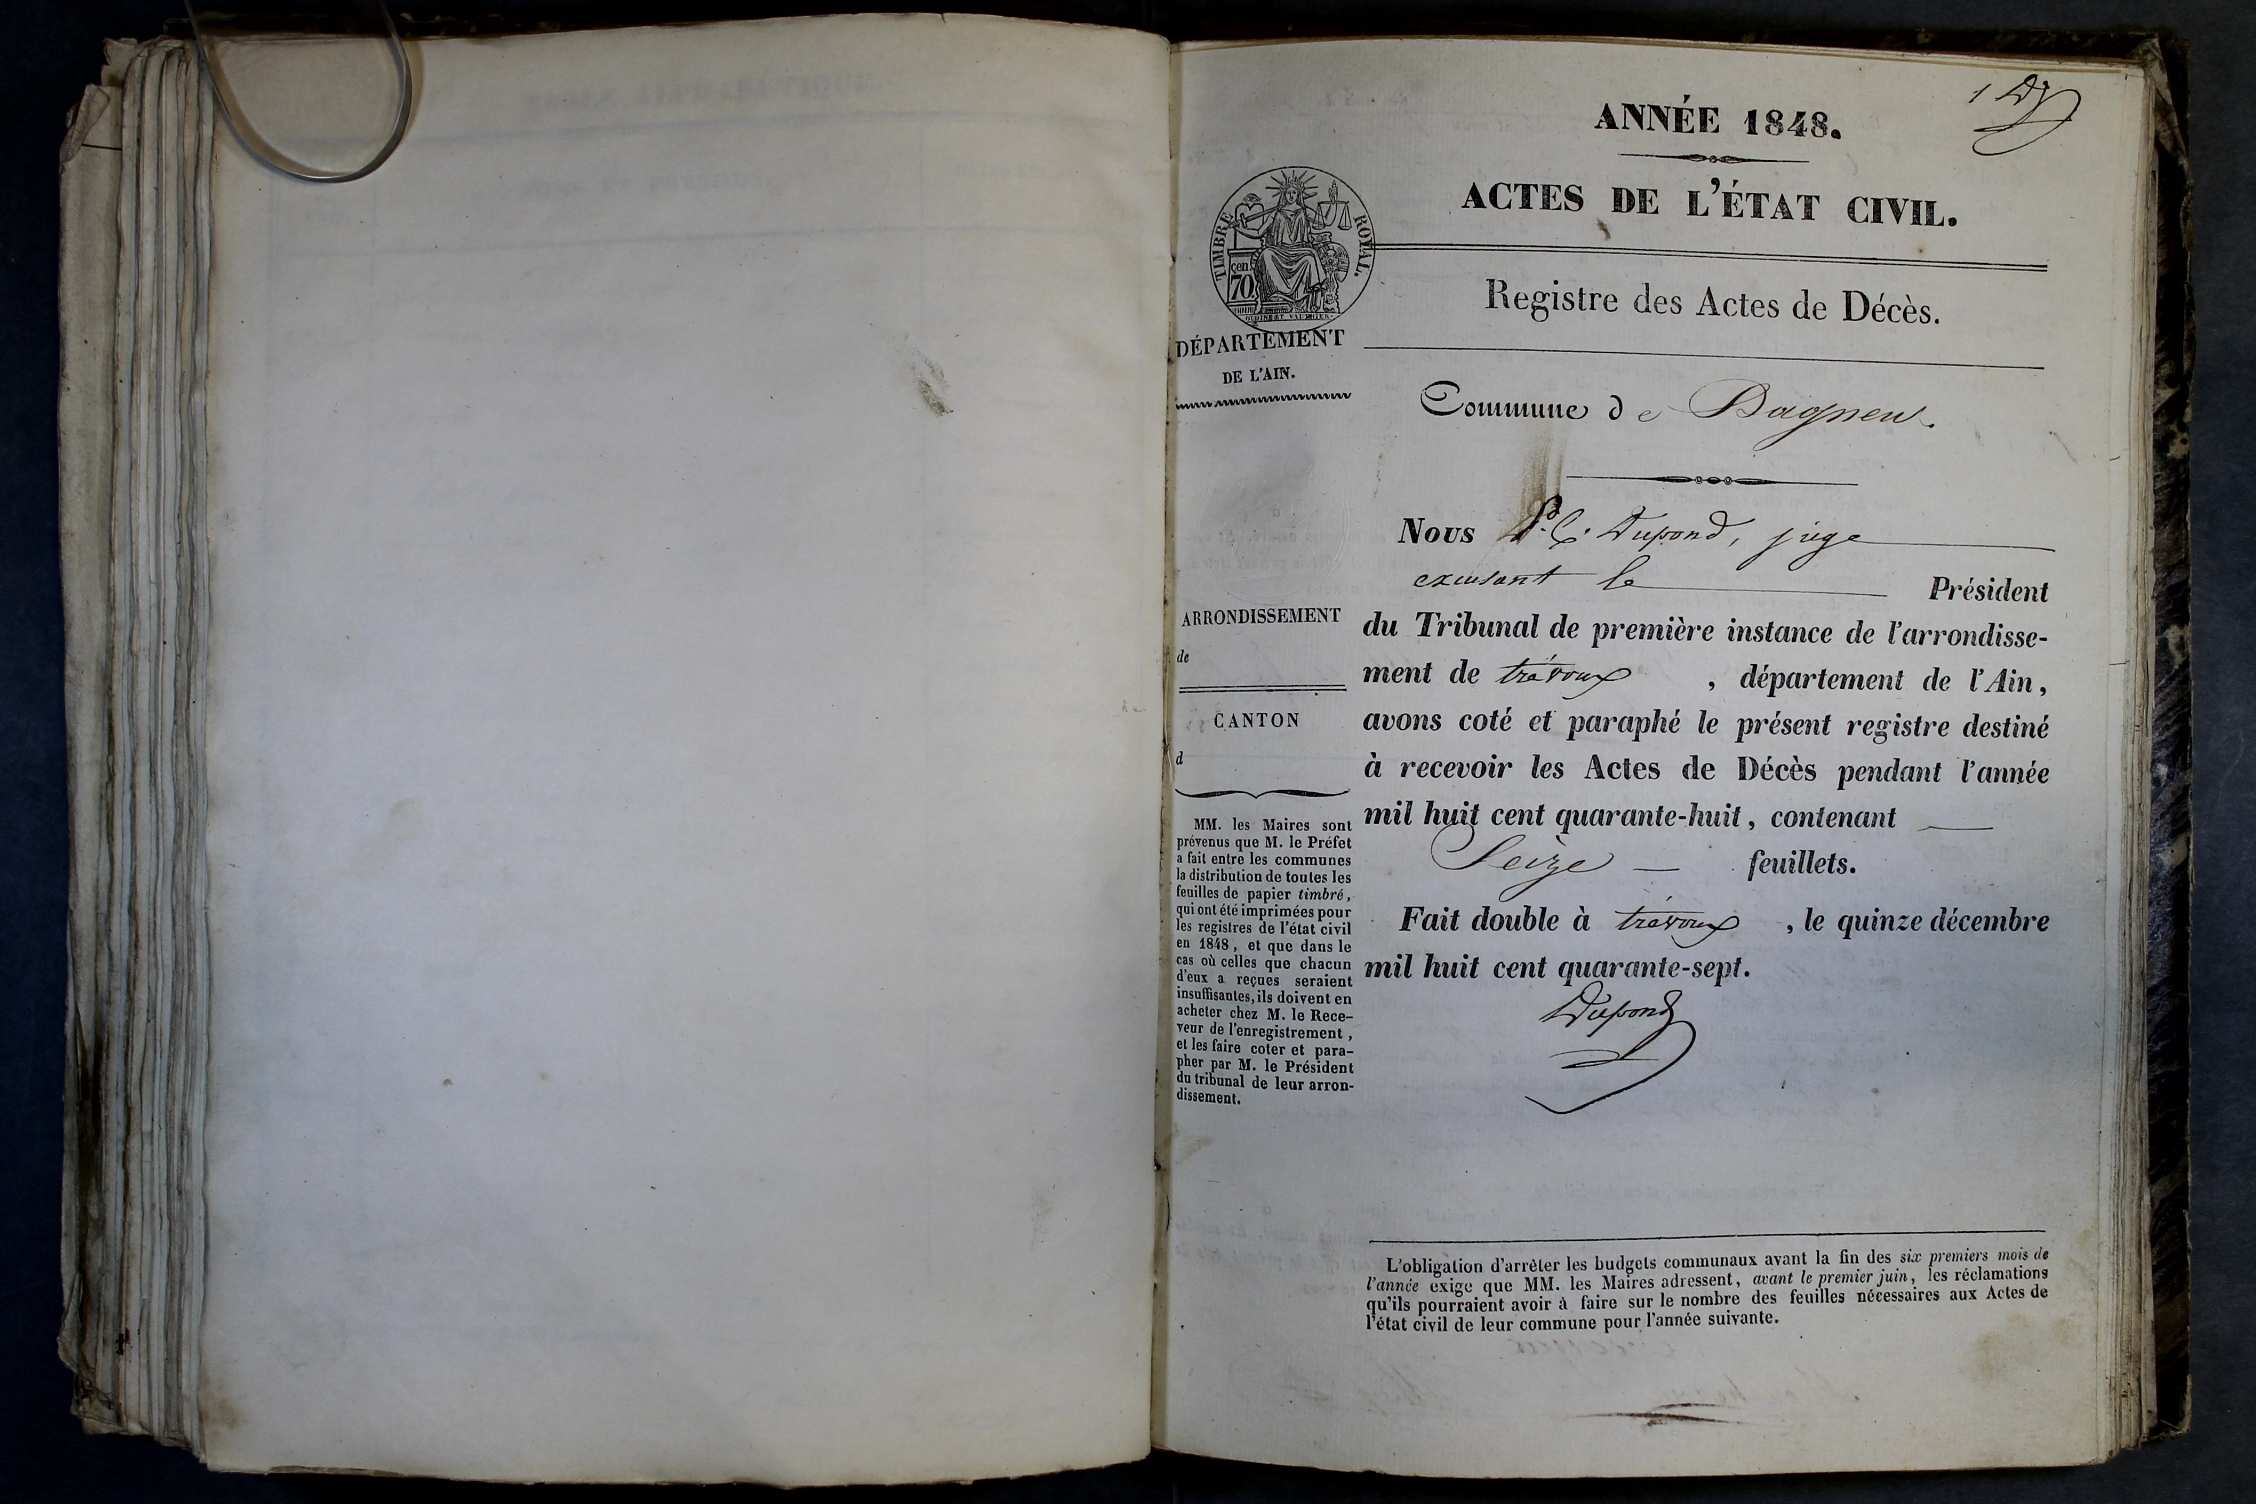 1 D
ANNÉE 1848.
ACTES DE L'ÉTAT CIVIL.
TIMBRE ROYAL.
cen
70
Registre des Actes de Décès.
DÉPARTEMENT
DE L'AIN.
Commune de Dagneu.
Nous Dupond, juge
excusant le Président
du Tribunal de première instance de l'arrondisse-
ment de trévoux, département de l'Ain,
avons coté et paraphé le présent registre destiné
à recevoir les Actes de Décès pendant l'année
mil huit cent quarante-huit, contenant
Seize feuillets.
Fait double à trévoux, le quinze décembre
mil huit cent quarante-sept.
Dupond
ARRONDISSEMENT
de
CANTON
d
MM. les Maires sont
prévenus que M. le Préfet
a fait entre les communes
la distribution de toutes les
feuilles de papier timbré,
qui ont été imprimées pour
les registres de l'état civil
en 1848, et que dans le
cas où celles que chacun
d'eux a reçues seraient
insuffisantes, ils doivent en
acheter chez M. le Rece-
veur de l'enregistrement,
et les faire coter et para-
pher par M. le Président
du tribunal de leur arron-
dissement.
L'obligation d'arrêter les budgets communaux avant la fin des six premiers mois de
l'année exige que MM. les Maires adressent, avant le premier juin, les réclamations
qu'ils pourraient avoir à faire sur le nombre des feuilles nécessaires aux Actes de
l'état civil de leur commune pour l'année suivante.